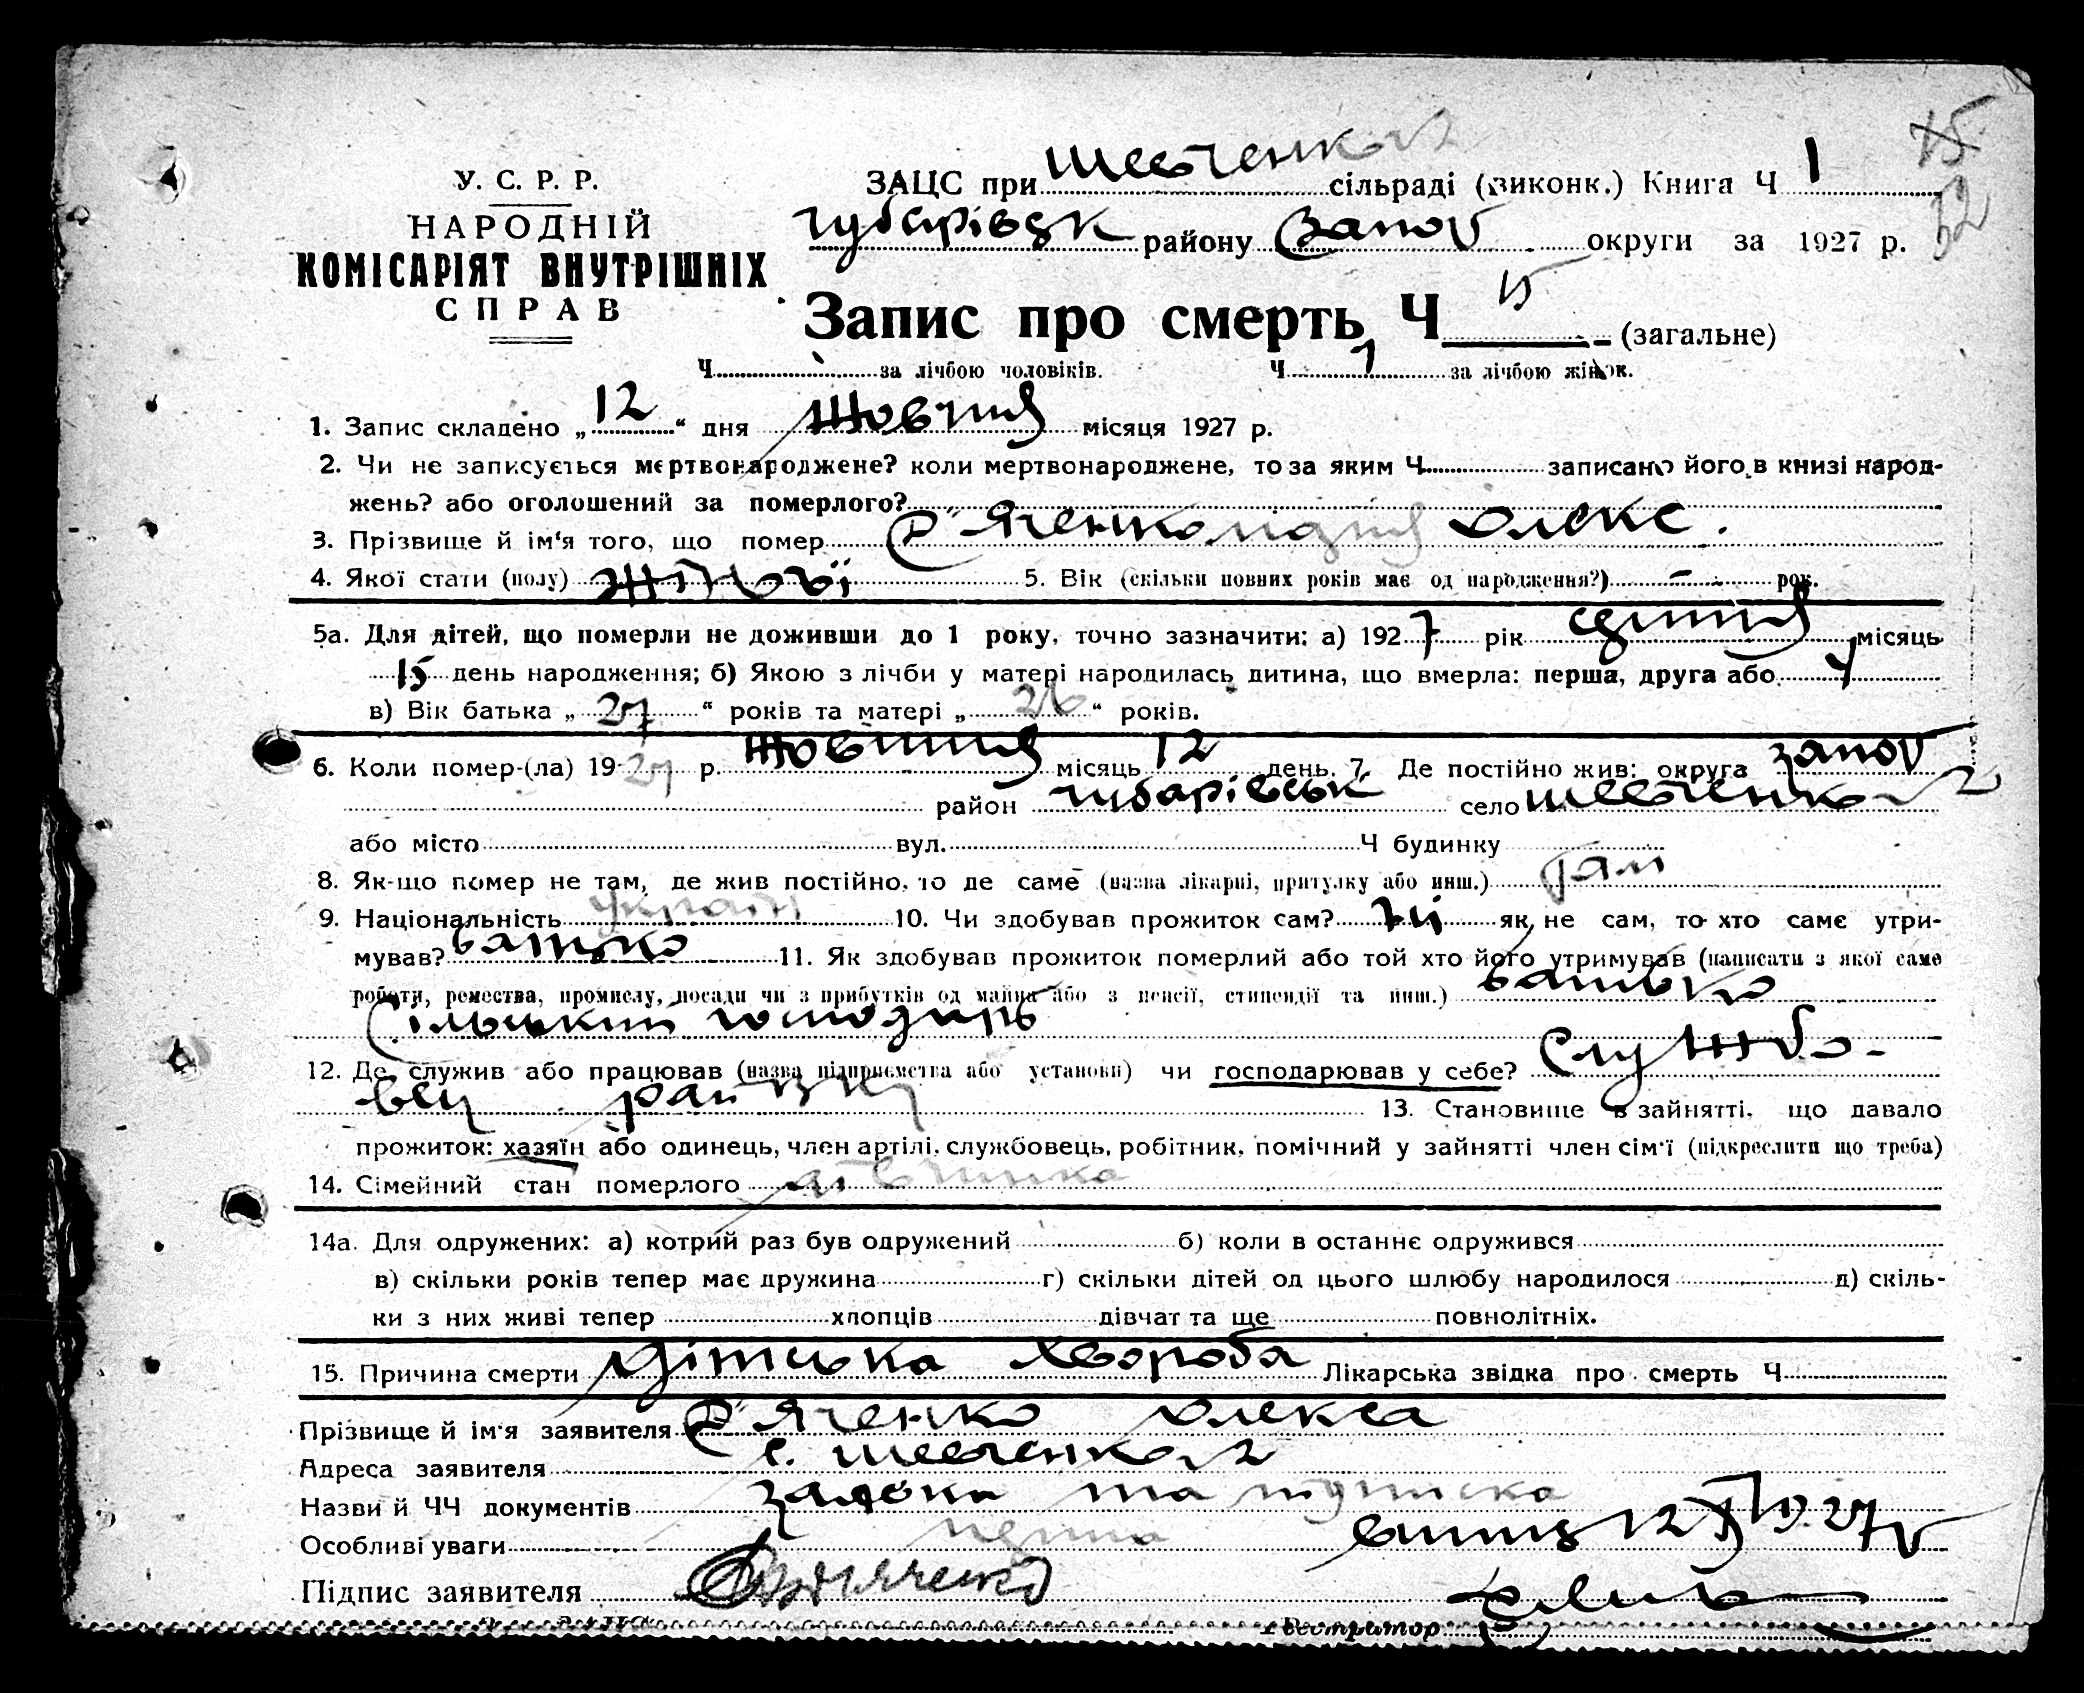 У. С. Р. Р.
НАРОДНІЙ
КОМІСАРІЯТ ВНУТРІШНІХ
СПРАВ
ЗАЦС при Шевченков сільраді (виконк.) Книга Ч 1
Губарівськ району Запов округи за 1927 р.
Запис про смерть Ч 15 (загальне)
Ч за лічбою чоловіків. Ч 7 за лічбою жінок.
1. Запис складено „ 12 “ дня Жовтня місяця 1927 р.
2. Чи не записується мертвонароджене? коли мертвонароджене, то за яким Ч записано його в книзі народ-
жень? або оголошений за померлого?
3. Прізвище й ім'я того, що помер Д'яченко Олекс.
4. Якої стати (полу) 5. Вік (скільки повних років має од народження?) - рок.
5а. Для дітей, що померли не доживши до 1 року, точно зазначити: а) 1927 рік місяць
15 день народження; б) Якою з лічби у матері народилась дитина, що вмерла: перша, друга або
в) Вік батька „ 27 “ років та матері „ 26 “ років.
6. Коли помер-(ла) 1927 р. Жовтня місяць 12 день. 7. Де постійно жив: округа Запов
район Губарівськ село Шевченков
або місто вул. Ч будинку
8. Як-що помер не там, де жив постійно, то де саме (назва лікарні, притулку або инш.) там
9. Національність україн 10. Чи здобував прожиток сам? ні як не сам, то хто саме утри-
мував? батько 11. Як здобував прожиток померлий або той хто його утримував (написати з якої саме
роботи, ремества, промислу, посади чи з прибутків од майна або з пенсії, стипендії та инш.) батько
Сільський господарь
12. Де служив або працював (назва підприємства або установи) чи господарював у себе? Службо-
вец 13. Становище в зайнятті, що давало
прожиток: хазяїн або одинець, член артілі, службовець, робітник, помічний у зайнятті член сім'ї (підкреслити що треба)
14. Сімейний стан померлого дівчинка
14а. Для одружених: а) котрий раз був одружений б) коли в останнє одружився
в) скільки років тепер має дружина г) скільки дітей од цього шлюбу народилося д) скіль-
ки з них живі тепер хлопців дівчат та ще повнолітніх.
15. Причина смерти Дітська хвороба Лікарська звідка про смерть Ч
Прізвище й ім'я заявителя Д'яченко Олекса
Адреса заявителя с. Шевченков
Назви й ЧЧ документів заявка та
Особливі уваги 12/X 1927 р
Підпис заявителя
Реєстратор